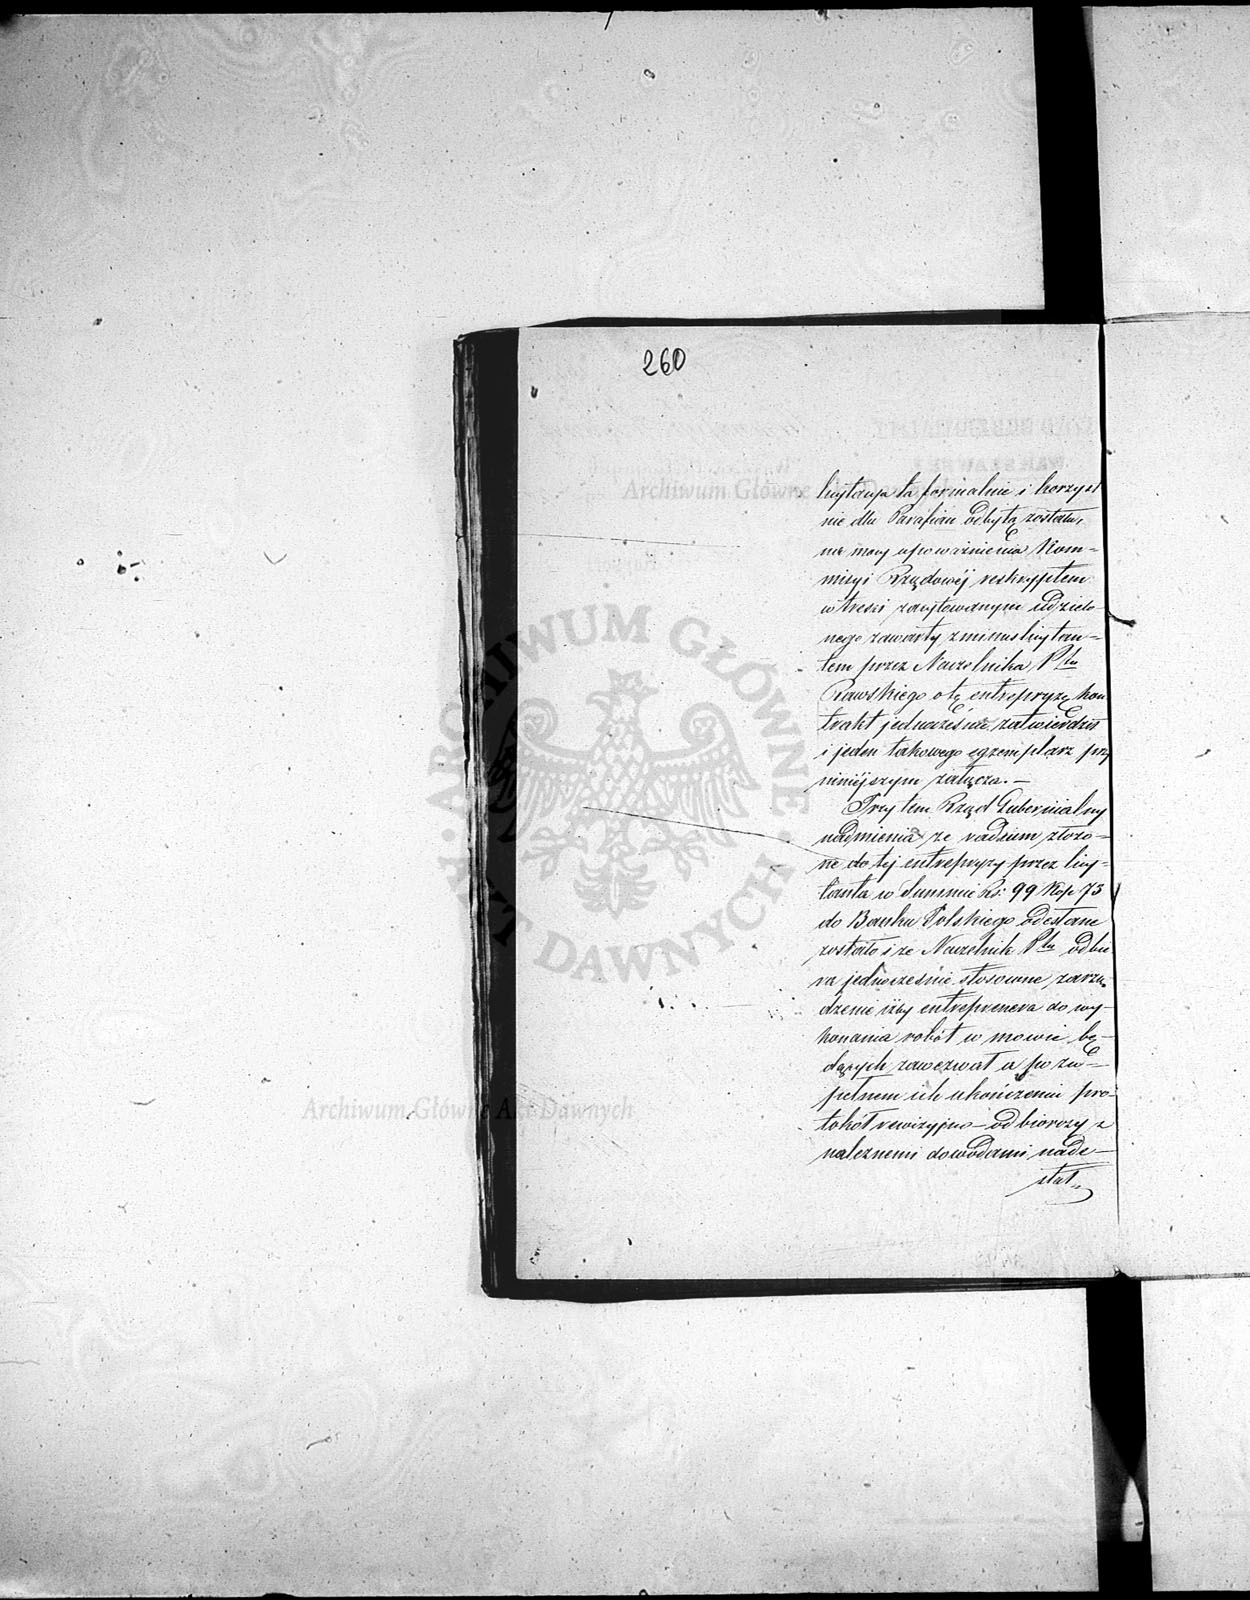 260
licytacya ta formalnie i korzyst
nie dla Parafian odbytą została,
na mocy upoważnienia Kom-
missyi Rządowéj reskryptem
w treści zacytowanym udzielo-
nego zawarty z minus licytan-
tem przez Naczelnika Ptu
Rawskiego o tę entrepryzę kon
trakt jednocześnie zatwierdził
i jeden takowego egzemplarz przy
niniéjszym załącza.—
Przytem Rząd Gubernialny
nadmienia że vadium złożo-
ne do téj entrepryzy przez licy-
tanta w Summie Rs: 99 Kop 73
do Banku Polskiego odesłane
zostało i że Naczelnik Ptu odbie
ra jednocześnie stosowne zarzą-
dzenie iżby entreprenera do wy-
konania robót w mowie bę-
dących zawezwał a po zu-
pełnem ich ukończeniu pro-
tokół rewizyjno-odbiorczy z
należnemi dowodami nade-
słał
Archiwum Główne Akt Dawnych
ARCHIWUM GŁÓWNE AKT DAWNYCH
Archiwum Główne Akt Dawnych